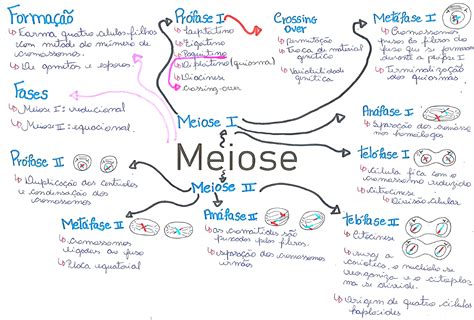 Formação
↳ Forma quatro células filhas
com metade do número de
cromossomos.
↳ De gametas e esporos
Fases
↳ Meiose I: reducional
↳ Meiose II: equacional.
Prófase I
↳ Leptótino
↳ Zigótino
↳ Paquítino
↳ Diplótino (quiasma)
↳ Diacinese
↳ Crossing-over
Crossing
over
↳ permutação
↳ Troca de material
genético
↳ Variabilidade
genética
Metáfase I
↳ Cromossomos
presos às fibras do
fuso que se formam
durante a prófase I
↳ Terminalização
dos quiasmas
Meiose I
Anáfase I
↳ separação dos cromossomos
homólogos
Meiose
Telófase I
↳ Célula fica com o
cromossomo reduzido
↳ Citocinese
↳ Divisão celular
Prófase II
↳ Duplicação dos centríolos
e condensação dos
cromossomos
Meiose II
Metáfase II
↳ cromossomos
ligados ao fuso
↳ Placa equatorial
Anáfase II
↳ as cromátides são
puxadas pelas fibras.
↳ separação dos cromossomos
irmãos
Telófase II
↳ Citocinese
↳ surge a
carioteca, o nucléolo se
reorganiza e o citoplas
ma se divide.
↳ Origem de quatro células
haploides